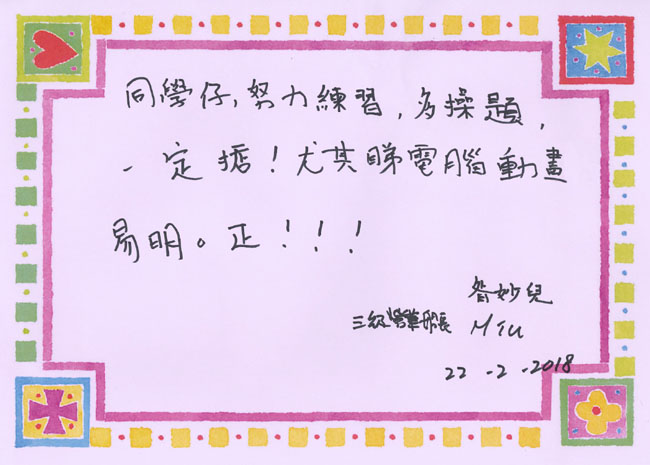 同學仔，努力練習，多操題，
一定掂！尤其睇電腦動畫
易明。正！！！
妙兒
三級營業船長 MIU
22-2-2018